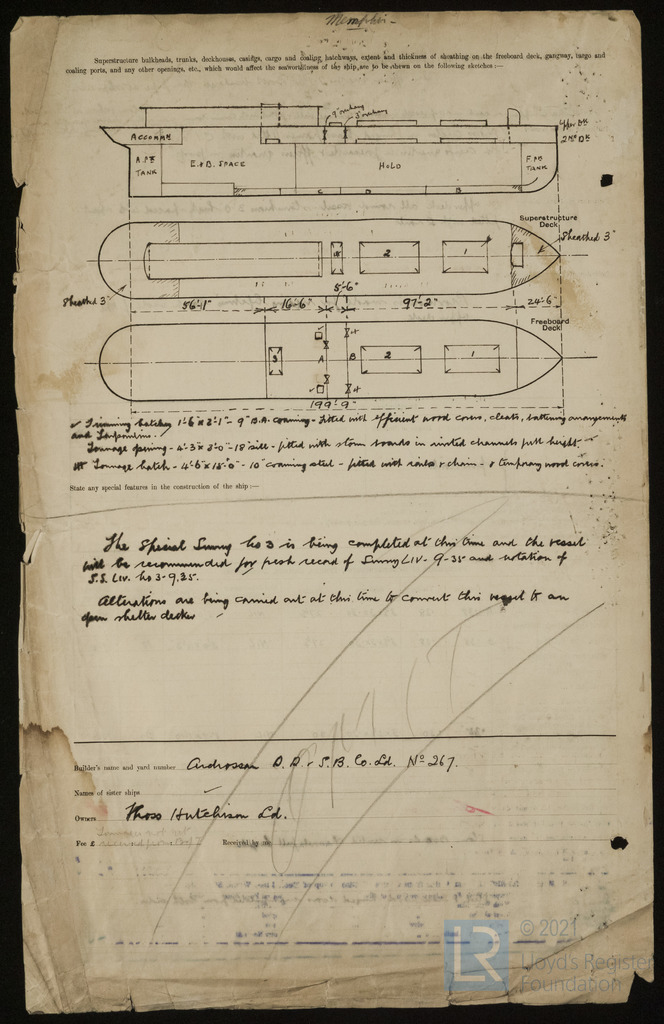 Memphis -
Superstructure bulkheads, trunks, deckhouses, casings, cargo and coaling hatchways, extent and thickness of sheathing on the freeboard deck, gangway, cargo and
coaling ports, and any other openings, etc., which would affect the seaworthiness of the ship, are to be shewn on the following sketches:—
ACCOMMN
UPPER DK
2ND DK
A.P.
TANK
E.&B. SPACE
HOLD
F.P.
TANK
C D B
Superstructure
Deck
Sheathed 3"
2 1
Sheathed 3"
5'-6"
56'-1" 16'-6" 97'-2" 24'-6"
Freeboard
Deck
3 A B 2 1
199'-9"
✓ Trimming hatches 1'-6" x 2'-1" - 9" B.A. coaming - fitted with efficient wood covers, cleats, battening arrangements
and tarpaulins.
Tonnage opening - 4'-3" x 3'-0" - 18" sill - fitted with storm boards in riveted channels full height.
Tonnage hatch - 4'-6" x 18'-0" - 10" coaming steel - fitted with rails & chain - & temporary wood covers.
State any special features in the construction of the ship:—
The Special Survey No 3 is being completed at this time and the vessel
will be recommended for fresh record of Survey LIV - 9-35 and notation of
S.S. LIV. No 3 - 9,35.
Alterations are being carried out at this time to convert this vessel to an
open shelter decker
Builder's name and yard number Ardrossan D.D. & S.B. Co. Ld. No 267.
Names of sister ships
Owners Thos Hutchison Ld.
Fee £ Received by me
© 2021
LR
Lloyd's Register
Foundation